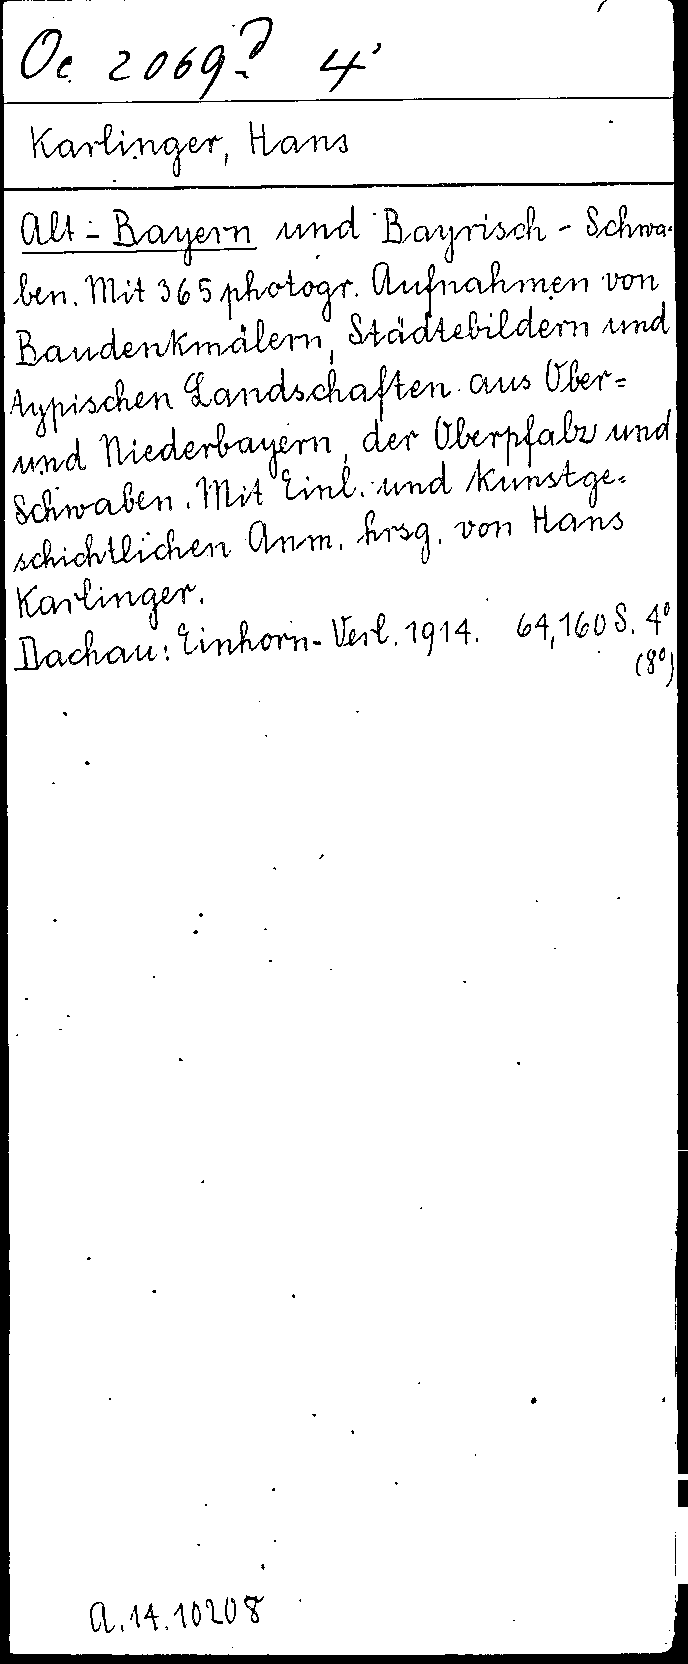 Oe 2069? 4°
Karlinger, Hans
Alt-Bayern und Bayrisch-Schwa-
ben. Mit 365 photogr. Aufnahmen von
Baudenkmälern, Städtebildern und
typischen Landschaften aus Ober=
und Niederbayern, der Oberpfalz und
Schwaben. Mit Einl. und kunstge=
schichtlichen Anm. hrsg. von Hans
Karlinger.
Dachau: Einhorn-Verl. 1914. 64,160 S. 4°
(8°)
A.14.10208